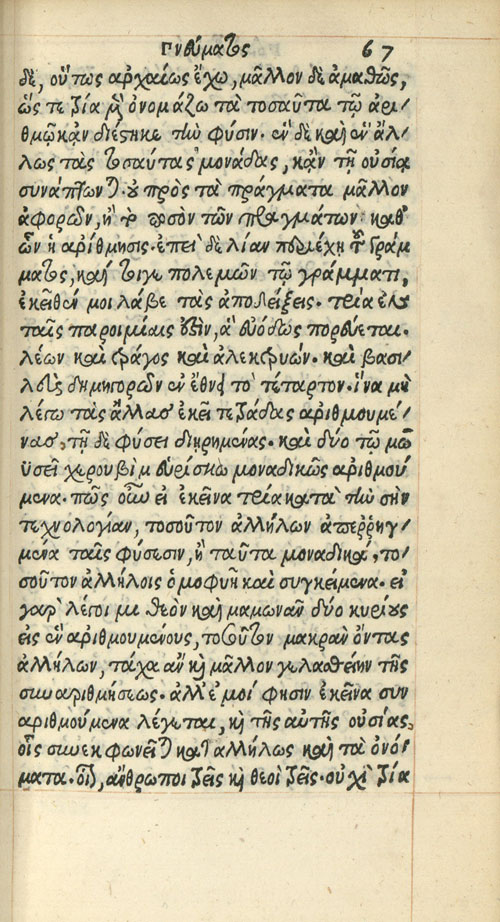 Πνεύματος 67
δὲ, οὕτως ἀρχαίως ἔχω, μᾶλλον δὲ ἀμαθῶς,
ὥς τε τρία μὲν ὀνομάζω τὰ τοσαῦτα τῷ ἀρι/
θμῷ κἂν διέστηκε τὴν φύσιν. ἓν δὲ καὶ ἓν ἄλ/
λως τὰς τοσαύτας μονάδας, κἂν τῇ οὐσίᾳ
συνάπτωνται. οὐ πρὸς τὰ πράγματα μᾶλλον
ἀφορῶν, ἢ τὸ ποσὸν τῶν πραγμάτων καθ'
ὧν ἡ ἀρίθμησις. ἐπεὶ δὲ λίαν περιέχῃ τοῦ γράμ
ματος, καί τοιγε πολεμῶν τῷ γράμματι,
ἐκεῖθέν μοι λάβε τὰς ἀποδείξεις. τρία ἐν
ταῖς παροιμίαις ἐστὶν, ἃ εὐόδως πορεύεται.
λέων καὶ τράγος καὶ ἀλεκτρυών. καὶ βασι/
λεὺς δημηγορῶν ἐν ἔθνει τὸ τέταρτον. ἵνα μὴ
λέγω τὰς ἄλλας ἐκεῖ τετράδας ἀριθμουμέ/
νας, τῇ δὲ φύσει διῃρημένας. καὶ δύο τῷ μω
ϋσεῖ χερουβὶμ εὑρίσκω μοναδικῶς ἀριθμού
μενα. πῶς οὖν εἰ ἐκεῖνα τρία κατὰ τὴν σὴν
τεχνολογίαν, τοσοῦτον ἀλλήλων ἀπερρηγ/
μένα ταῖς φύσεσιν, ἢ ταῦτα μοναδικά, το/
σοῦτον ἀλλήλοις ὁμοφυῆ καὶ συγκείμενα. εἰ
γὰρ λέγοιμι θεὸν καὶ μαμωνᾶν δύο κυρίους
εἰς ἓν ἀριθμουμένους, τοσοῦτον μακρὰν ὄντας
ἀλλήλων, τάχα ἂν καὶ μᾶλλον γελασθείην τῆς
συναριθμήσεως. ἀλλ' ἐμοί φησιν ἐκεῖνα συν
αριθμούμενα λέγεται, καὶ τῆς αὐτῆς οὐσίας,
οἷς συνεκφωνεῖται καταλλήλως καὶ τὰ ὀνό/
ματα. οἷον, ἄνθρωποι τρεῖς καὶ θεοὶ τρεῖς. οὐχὶ τρία